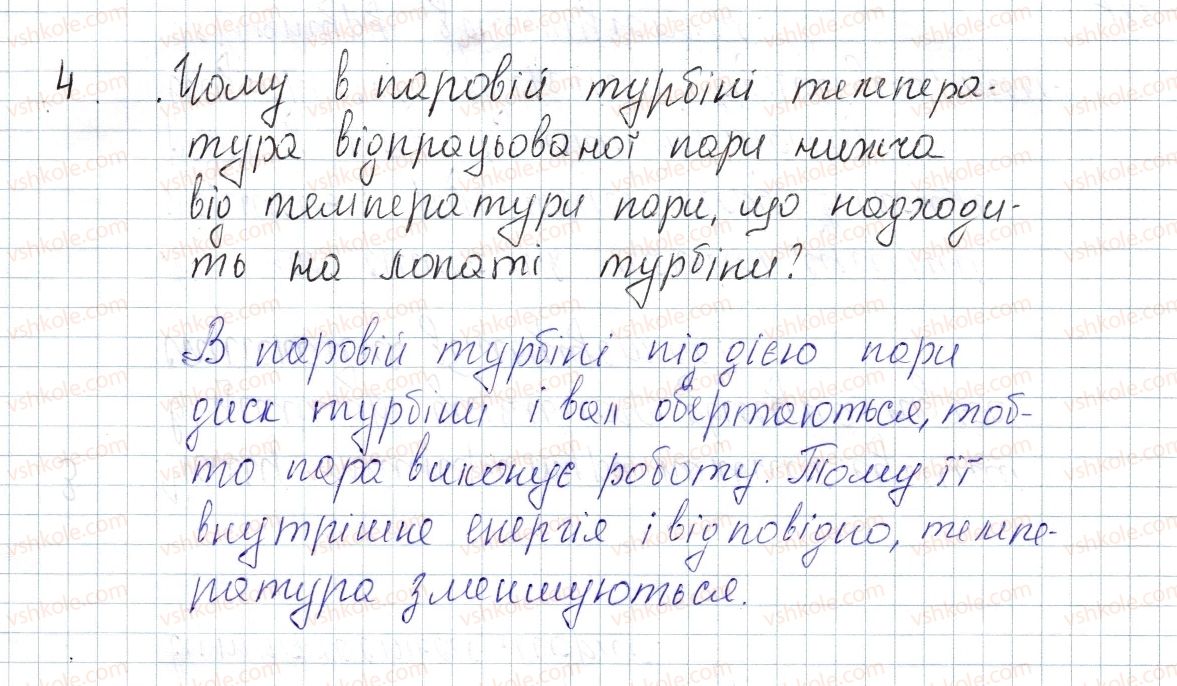 4. Чому в паровій турбіні темпера-
тура відпрацьованої пари нижча
від температури пари, що надходи-
ть на лопаті турбіни?
В паровій турбіні під дією пари
диск турбіни і вал обертаються, тоб-
то пара виконує роботу. Тому її
внутрішне енергія і відповідно, темпе-
ратура зменшуються.